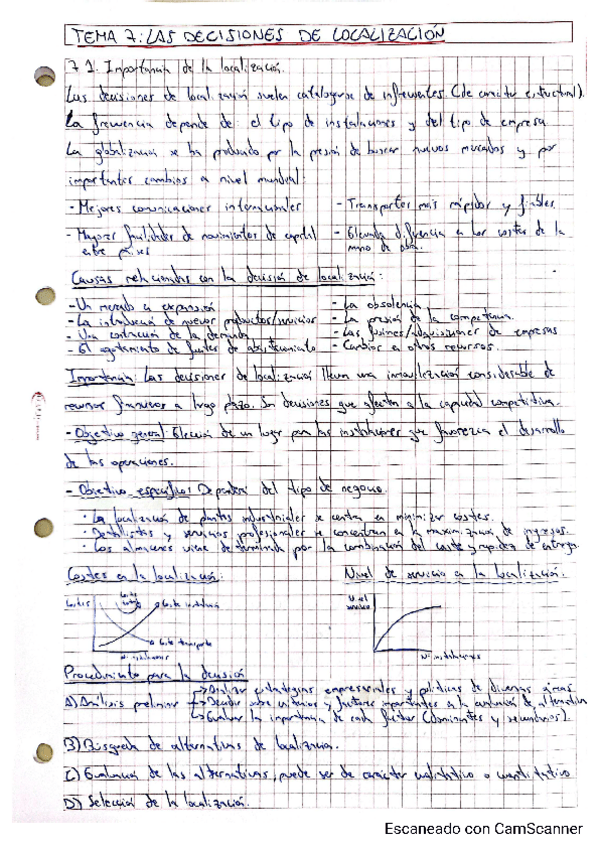 TEMA 7: LAS DECISIONES DE LOCALIZACIÓN
7.1. Importancia de la localización.
Las decisiones de localización suelen catalogarse de infrecuentes (de carácter estructural).
La frecuencia depende de: el tipo de instalaciones y del tipo de empresa
La globalización se ha producido por la presión de buscar nuevos mercados y por
importantes cambios a nivel mundial:
- Mejores comunicaciones internacionales
- Transportes más rápidos y fiables.
- Mayores facilidades de movimientos de capital
entre países
- Elevada diferencia en los costes de la
mano de obra.
Causas relacionadas con la decisión de localización:
- Un mercado en expansión
- La introducción de nuevos productos/servicios
- Una contracción de la demanda
- El agotamiento de fuentes de abastecimiento
- La obsolencia
- La presión de la competencia.
- Las fusiones/adquisiciones de empresas
- Cambios en otros recursos.
Importancia: Las decisiones de localización llevan una inmovilización considerable de
recursos financieros a largo plazo. Son decisiones que afectan a la capacidad competitiva.
- Objetivo general: Elección de un lugar para las instalaciones que favorezca el desarrollo
de las operaciones.
- Objetivo específico: Dependerá del tipo de negocio
· La localización de plantas industriales se centra en minimizar costes.
· Detallistas y servicios profesionales se concentran en la maximización de ingresos.
· Los almacenes viene determinada por la combinación del coste y rapidez de entrega.
Costes en la localización:
Nivel de servicio en la localización:
Costes
Coste
Coste instalación
Coste transporte
Nº instalaciones
Nivel
servicio
Nº instalaciones
Procedimiento para la decisión
A) Análisis preliminar
→ Analizar estrategias empresariales y políticas de diversas áreas.
→ Decidir sobre criterios y factores importantes en la evaluación de alternativas
→ Evaluar la importancia de cada factor (dominantes y secundarios).
B) Búsqueda de alternativas de localización.
C) Evaluación de las alternativas, puede ser de carácter cualitativo o cuantitativo
D) Selección de la localización.
Escaneado con CamScanner